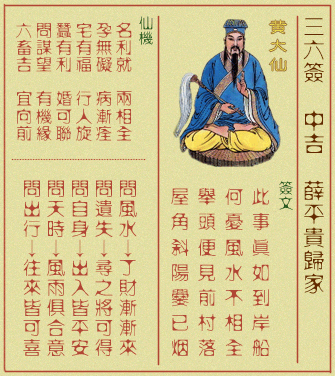 三六簽　中吉　薛平貴歸家
黃大仙
簽文
此事眞如到岸船
何憂風水不相全
舉頭便見前村落
屋角斜陽爨已烟
仙機
名利就　兩相全
孕無礙　病漸痊
宅有福　行人旋
蠶有利　婚可聯
問謀望　有機緣
六畜吉　宜向前
問風水→了財漸漸來
問遺失→尋之將可得
問自身→出入皆平安
問天時→風雨俱合意
問出行→往來皆可喜